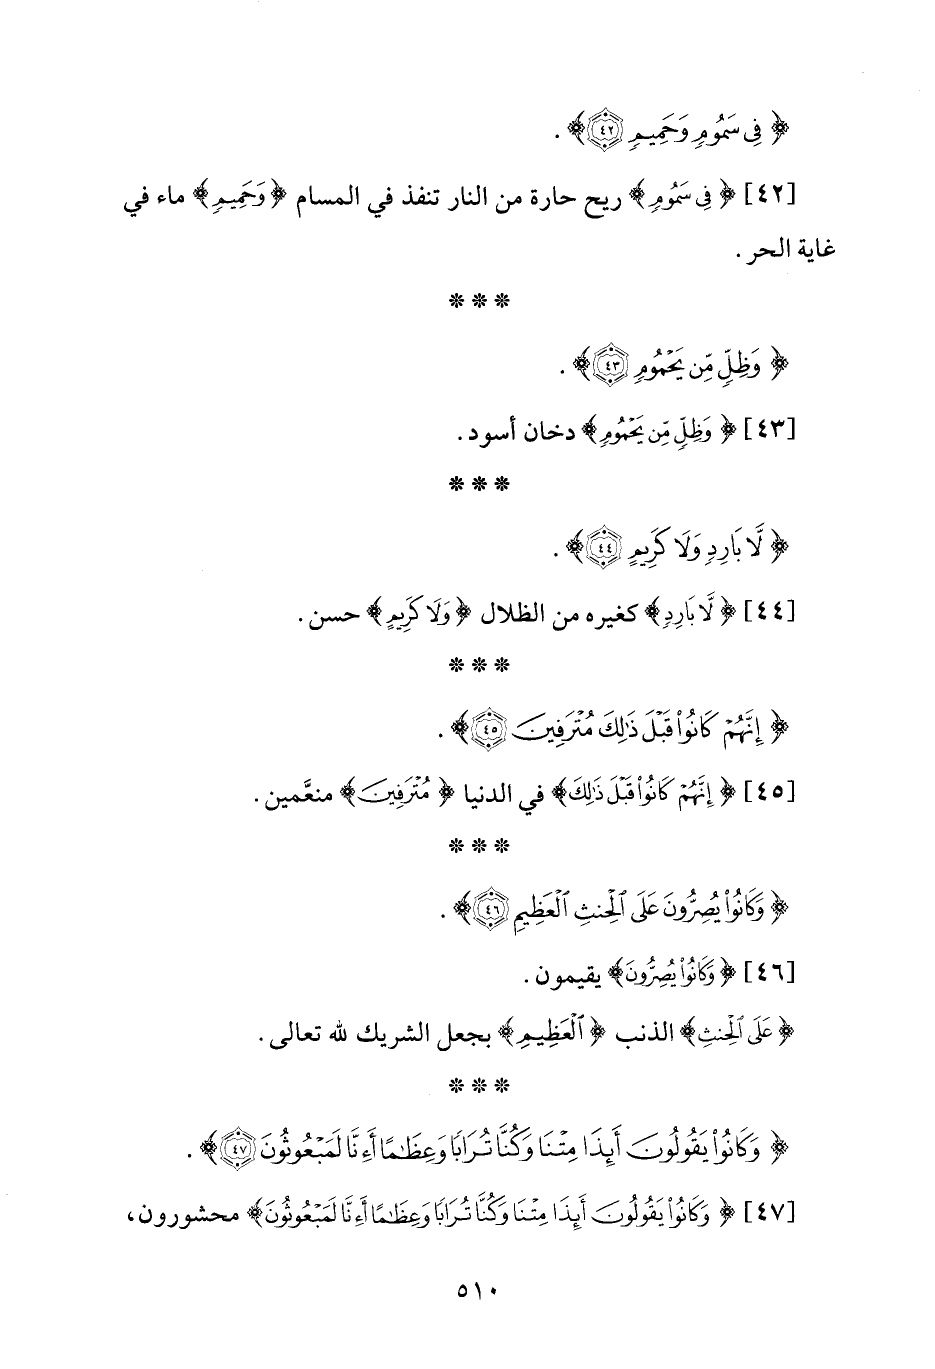 ﴿ فِي سَمُومٍ وَحَمِيمٍ ٤٢﴾ .
[٤٢] ﴿ فِي سَمُومٍ﴾ ريح حارة من النار تنفذ في المسام ﴿وَحَمِيمٍ﴾ ماء في
غاية الحر .
* * *
﴿ وَظِلٍّ مِّن يَحْمُومٍ ٤٣﴾ .
[٤٣] ﴿ وَظِلٍّ مِّن يَحْمُومٍ﴾ دخان أسود.
* * *
﴿ لَّا بَارِدٍ وَلَا كَرِيمٍ ٤٤﴾ .
[٤٤] ﴿ لَّا بَارِدٍ﴾ كغيره من الظلال ﴿وَلَا كَرِيمٍ﴾ حسن.
* * *
﴿ إِنَّهُمْ كَانُوا۟ قَبْلَ ذَٰلِكَ مُتْرَفِينَ ٤٥﴾ .
[٤٥] ﴿ إِنَّهُمْ كَانُوا۟ قَبْلَ ذَٰلِكَ﴾ في الدنيا ﴿ مُتْرَفِينَ﴾ منعَّمين.
* * *
﴿ وَكَانُوا۟ يُصِرُّونَ عَلَى ٱلْحِنثِ ٱلْعَظِيمِ ٤٦﴾ .
[٤٦] ﴿ وَكَانُوا۟ يُصِرُّونَ﴾ يقيمون.
﴿ عَلَى ٱلْحِنثِ﴾ الذنب ﴿ ٱلْعَظِيمِ﴾ بجعل الشريك لله تعالى.
* * *
﴿ وَكَانُوا۟ يَقُولُونَ أَئِذَا مِتْنَا وَكُنَّا تُرَابًا وَعِظَٰمًا أَءِنَّا لَمَبْعُوثُونَ ٤٧﴾ .
[٤٧] ﴿ وَكَانُوا۟ يَقُولُونَ أَئِذَا مِتْنَا وَكُنَّا تُرَابًا وَعِظَٰمًا أَءِنَّا لَمَبْعُوثُونَ﴾ محشورون،
٥١٠